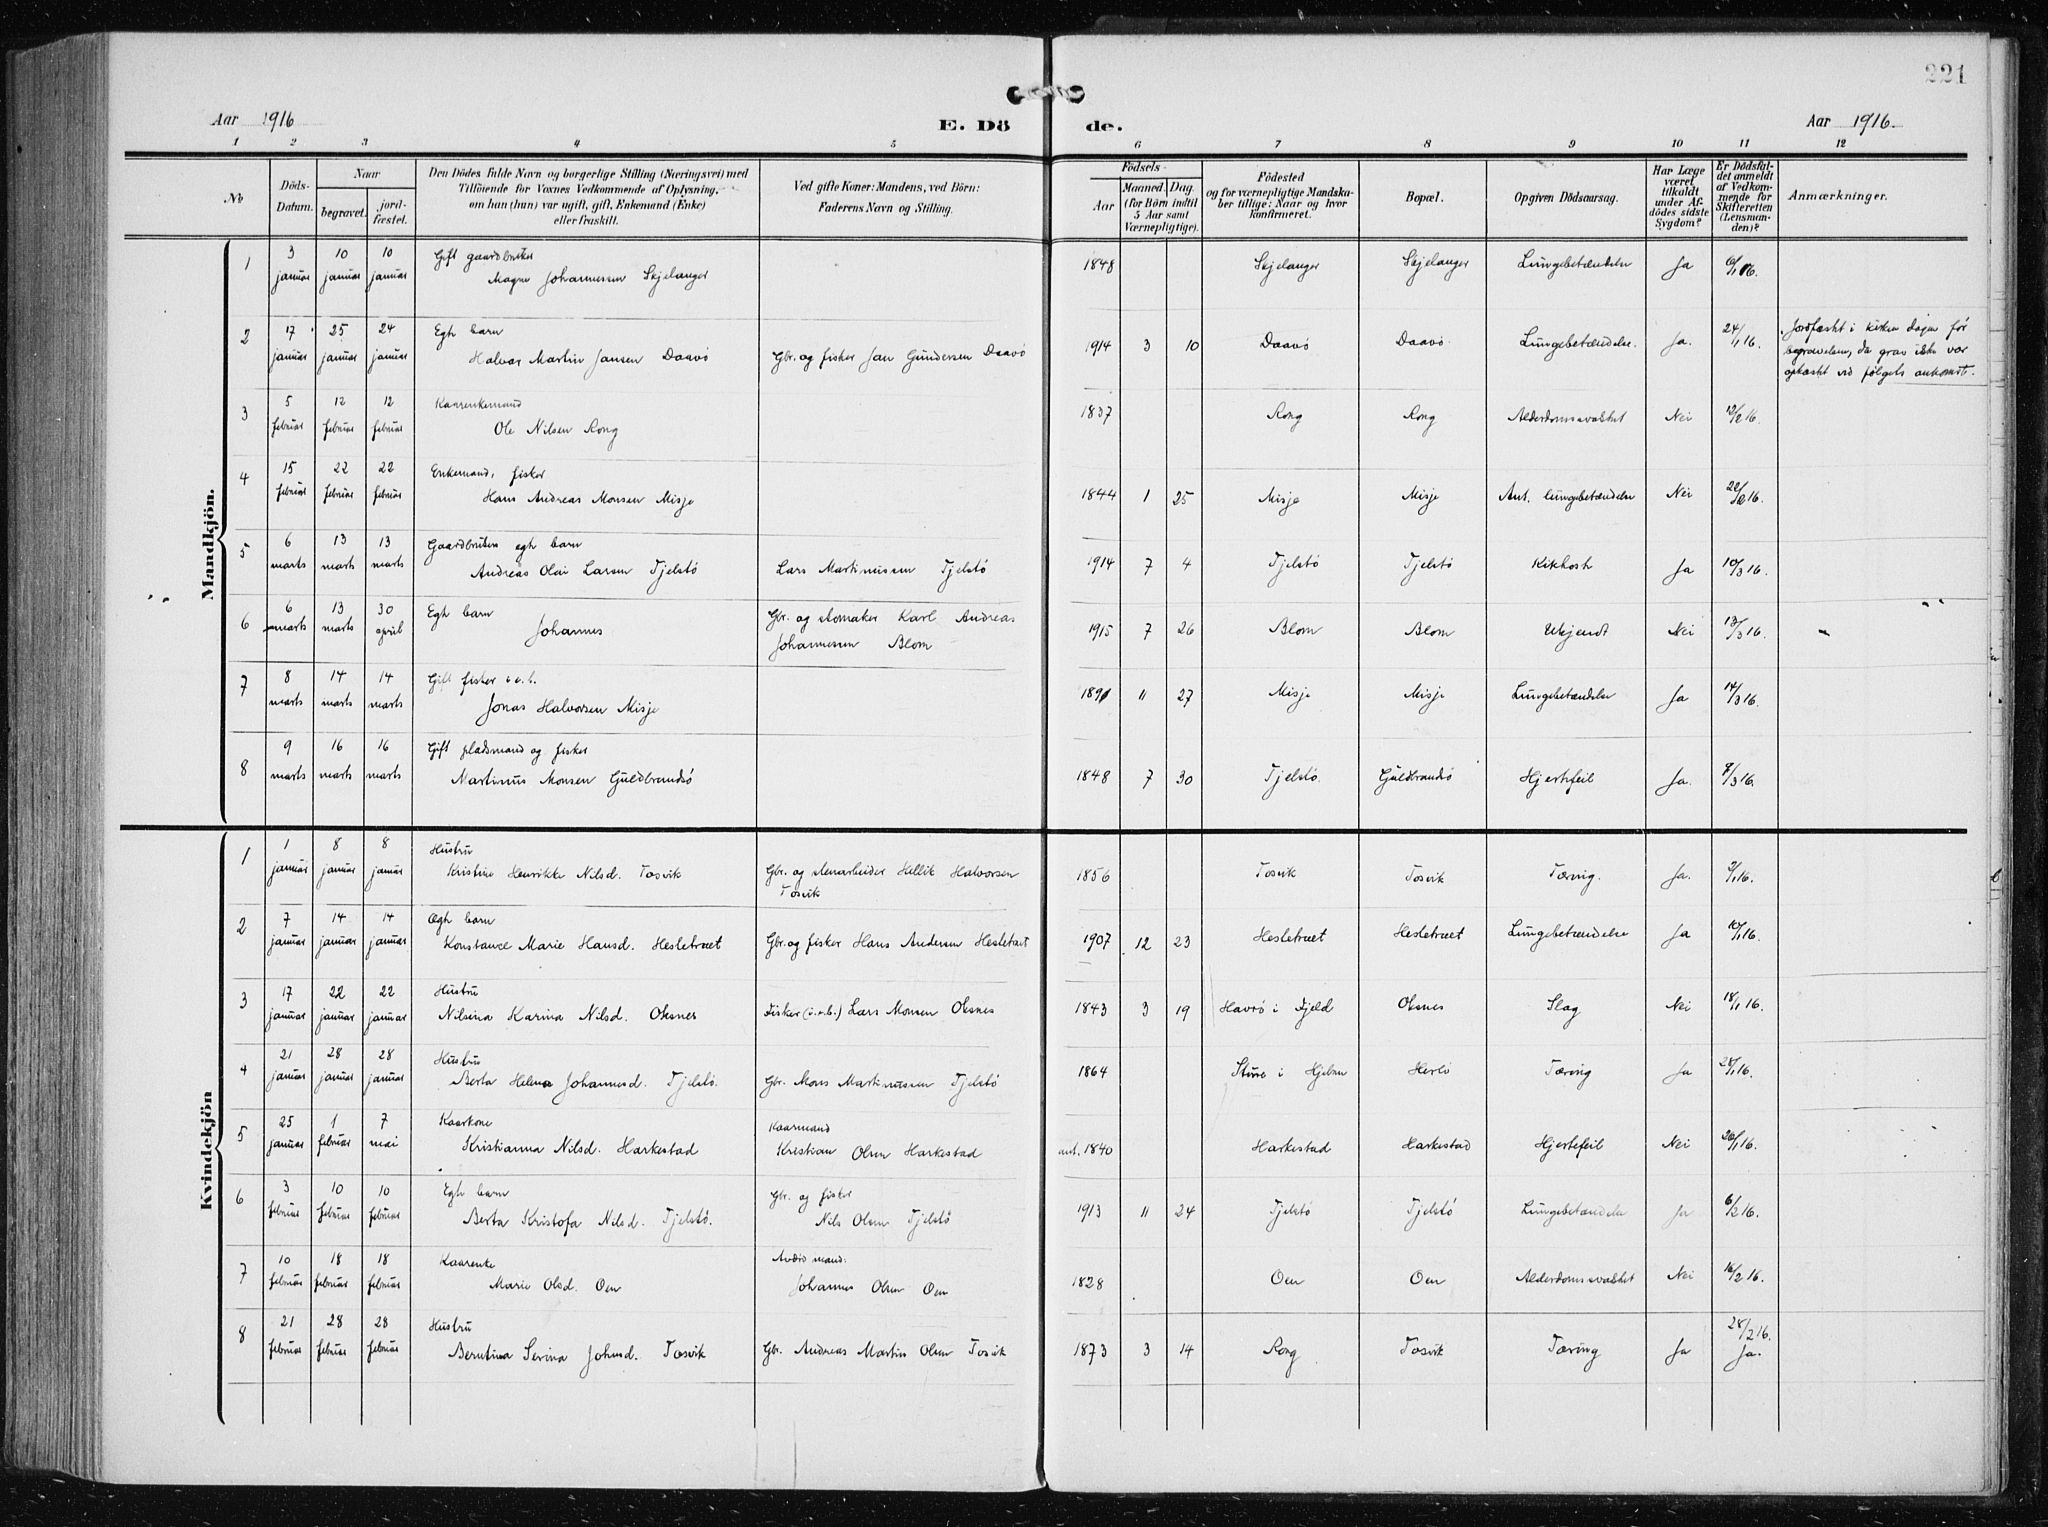 221
Aar 1916
E. Dö de.
Aar 1916.
1 2 3 4 5 6 7 8 9 10 11 12
No
Döds-Datum.
Naar
begravet.
jordfæstet.
Den Dödes fulde Navn og borgerlige Stilling (Næringsvei) med
Tilföiende for Voxnes Vedkommende af Oplysning,
om han (hun) var ugift, gift, Enkemand (Enke)
eller fraskilt.
Ved gifte Koner: Mandens, ved Börn:
Faderens Navn og Stilling.
Födsels-
Aar
Maaned. Dag.
(for Börn indtil
5 Aar samt
Værnepligtige).
Födested
og for værnepligtige Mandska-
ber tillige: Naar og hvor
konfirmeret.
Bopæl.
Opgiven Dödsaarsag.
Har Læge
været
tilkaldt
under Af-
dödes sidste
Sygdom?
Er Dödsfal-
det anmeldt
af Vedkom-
mende for
Skifteretten
(Lensman-
den)?
Anmærkninger.
Mandkjön.
1 3 januar 10 januar 10 januar Gift gaardbruker
Magne Johannessen Skjelanger 1848 Skjelanger Skjelanger Lungebetændelse Ja 6/1 16.
2 17 januar 25 januar 24 januar Egte barn
Halvar Martin Jansen Daavö Gbr. og fisker Jan Gundersen Daavö 1914 3 10 Daavö Daavö Lungebetændelse. Ja. 24/1 16.
Jordfæstet i kirken dagen för
begravelsen, da grav ikke var
opkastet ved fölgets ankomst.
3 5 februar 12 februar 12 februar Kaarenkemand
Ole Nilsen Rong 1837 Rong Rong Alderdomssvakhet Nei 12/2 16.
4 15 februar 22 februar 22 februar Enkemand, fisker
Hans Andreas Monsen Misje 1844 1 25 Misje Misje Ant. lungebetændelse Nei 22/2 16.
5 6 marts 13 marts 13 marts Gaardbruker egte barn
Andreas Olai Larsen Tjelstö Lars Martinussen Tjelstö 1914 7 4 Tjelstö Tjelstö Kikhoste Ja 10/3 16.
6 6 marts 13 marts 30 april Egte barn
Johannes Gbr. og skomaker Karl Andreas
Johannessen Blom 1915 7 26 Blom Blom Ukjendt Nei 13/3 16.
7 8 marts 14 marts 14 marts Gift fisker u.b.
Jonas Halvorsen Misje 1891 11 27 Misje Misje Lungebetændelse Ja 14/3 16.
8 9 marts 16 marts 16 marts Gift pladsmand og fisker
Martinus Monsen Guldbrandsö 1848 7 30 Tjelstö. Guldbrandsö Hjertefeil Ja. 9/3 16.
Kvindekjön
1 1 januar 8 januar 8 januar Hustru
Kristine Henrikke Nilsd. Tosvik Gbr. og stenarbeider Hellik Halvorsen
Tosvik 1856 Tosvik Tosvik Tæring. Ja. 3/1 16.
2 7 januar 14 januar 14 januar Ægte barn
Konstance Marie Hansd. Hesletræet Gbr. og fisker Hans Andersen Hesletræet 1907 12 23 Hesletræet Hesletræet Lungebetændelse Ja 10/1 16.
3 17 januar 22 januar 22 januar Hustru
Nilsina Karina Nilsd. Oksnes Fisker (u.b.) Lars Monsen Oksnes 1843 3 19 Havrö i Fjeld Oksnes Slag Nei 18/1 16.
4 21 januar 28 januar 28 januar Hustru
Berta Helena Johannesd. Tjelstö. Gbr. Mons Martinussen Tjelstö 1864 Sture i Hjelme Herlö Tæring Ja 28/1 16.
5 25 januar 1 februar 7 mai Kaarkone
Kristianna Nilsd. Harkestad Kaarmand
Kristian Olsen Harkestad ant. 1840 Harkestad Harkestad Hjertefeil Nei 26/1 16.
6 3 februar 10 februar 10 februar Egte barn
Berta Kristofa Nilsd. Tjelstö. Gbr. og fisker
Nils Olsen Tjelstö 1913 11 24 Tjelstö Tjelstö Lungebetændelse Ja 6/2 16.
7 10 februar 18 februar 18 februar Kaarenke
Marie Olsd. Oen Avdöd mand:
Johannes Olsen Oen 1828 Oen Oen Alderdomssvakhet Nei 16/2 16.
8 21 februar 28 februar 28 februar Hustru
Berntina Serina Johnsd. Tosvik Gbr. Andreas Martin Olsen Tosvik 1873 3 14 Rong Tosvik Tæring Ja 28/2 16.
Ja.